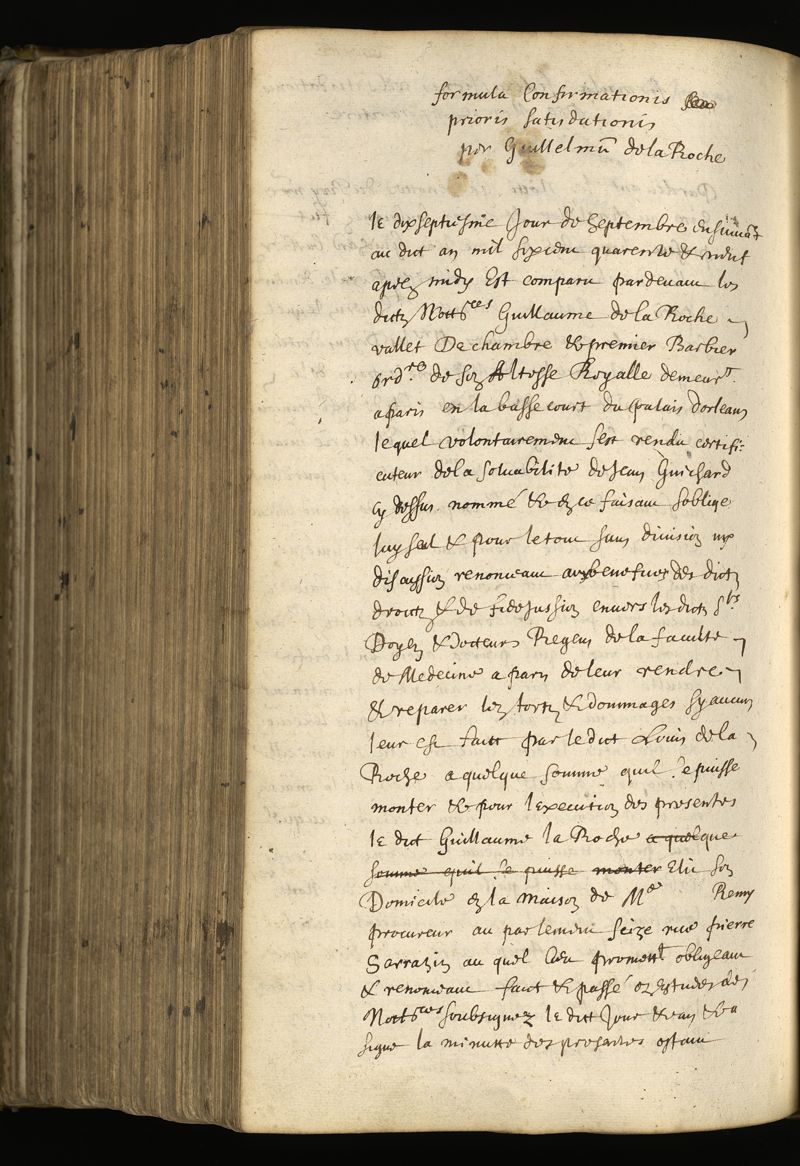 formula Confirmationis
prioris satisdationis
per Guillelmū de la Roche
le dixseptiesme Jour de Septembre ensuiuāt
au dict an mil sixcem quarente & neuf
apres midy Est comparu pardeuam les
dictz Nottres Guillaume de la Roche
vallet De chambre & premier Barbier
ordre de son Altesse Royalle demeurt.
a paris en la basse court du palais dorleans
lequel volontairemem sest rendu certifi-
cateur de la soluabilite de Jean Guichard
cy dessus nommé & en ce faisam soblige
luy seul & pour le tout sans diuision ny
discussion renonceam aux benefices des dictz
droictz & de fideiussion enuers les dictz Srs
Doyen & docteurs Regens de la faculte
de Medecine a paris de leur rendre
& reparer les tortz & dommages sy aucuns
leur est faict par le dict Louis de la
Roche a quelque somme quil se puisse
monter & pour lexecution des presentes
le dict Guillaume la Roche a quelque
somme quil se puisse monter Elit son
Domicile en la maison de Me Remy
procureur au parlemem seize rue pierre
Sarrazin au quel lieu promettt obligeam
& renonceam faict & passé es Estudes des
Nottres soubsignez le dict Jour & an & a
signe la minutte des presentes estam